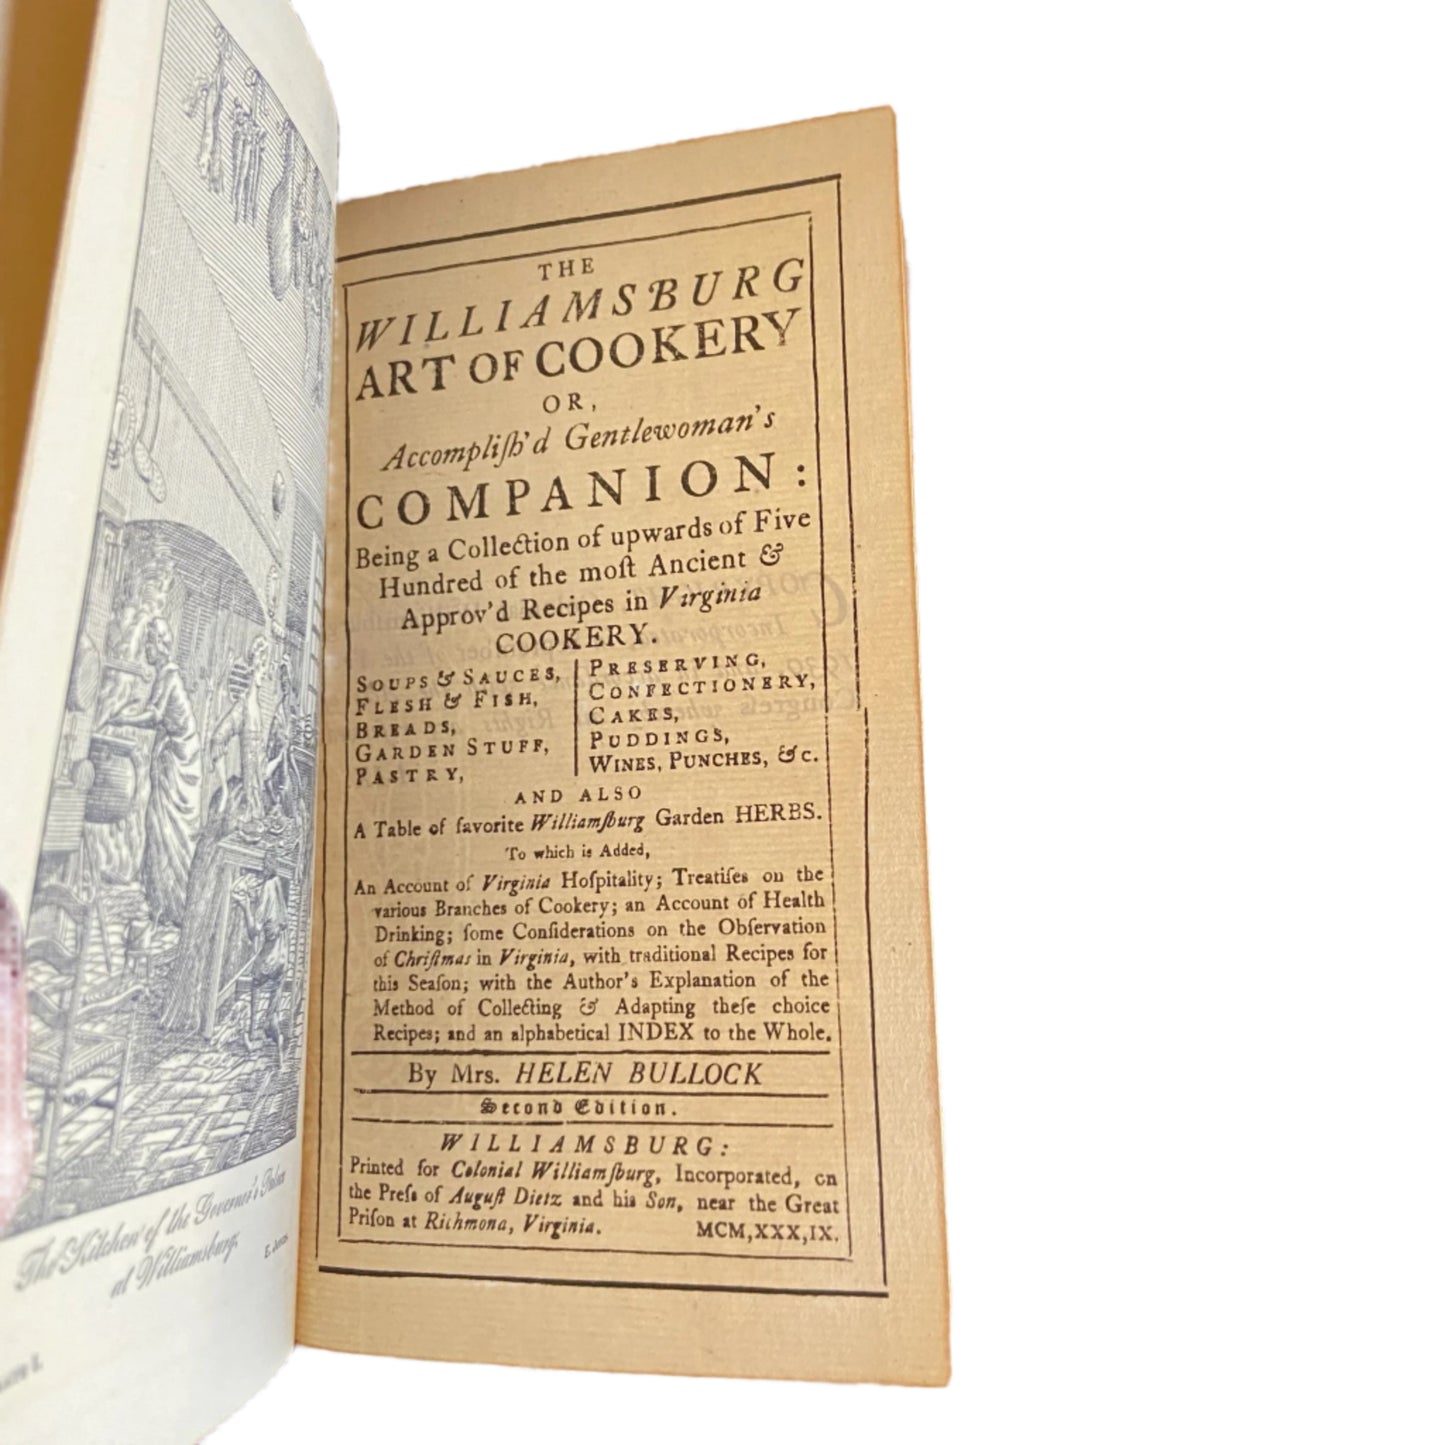 The Kitchen of the Governor's Palace
at Williamsburg,
THE
WILLIAMSBURG
ART OF COOKERY
OR,
Accompliſh'd Gentlewoman's
COMPANION:
Being a Collection of upwards of Five
Hundred of the moſt Ancient &
Approv'd Recipes in Virginia
COOKERY.
SOUPS & SAUCES,
FLESH & FISH,
BREADS,
GARDEN STUFF,
PASTRY,
PRESERVING,
CONFECTIONERY,
CAKES,
PUDDINGS,
WINES, PUNCHES, &c.
AND ALSO
A Table of favorite Williamſburg Garden HERBS.
To which is Added,
An Account of Virginia Hoſpitality; Treatiſes on the
various Branches of Cookery; an Account of Health
Drinking; ſome Conſiderations on the Obſervation
of Chriſtmas in Virginia, with traditional Recipes for
this Seaſon; with the Author's Explanation of the
Method of Collecting & Adapting theſe choice
Recipes; and an alphabetical INDEX to the Whole.
By Mrs. HELEN BULLOCK
Second Edition.
WILLIAMSBURG:
Printed for Colonial Williamſburg, Incorporated, on
the Preſs of Auguſt Dietz and his Son, near the Great
Priſon at Richmond, Virginia. MCM,XXX,IX.